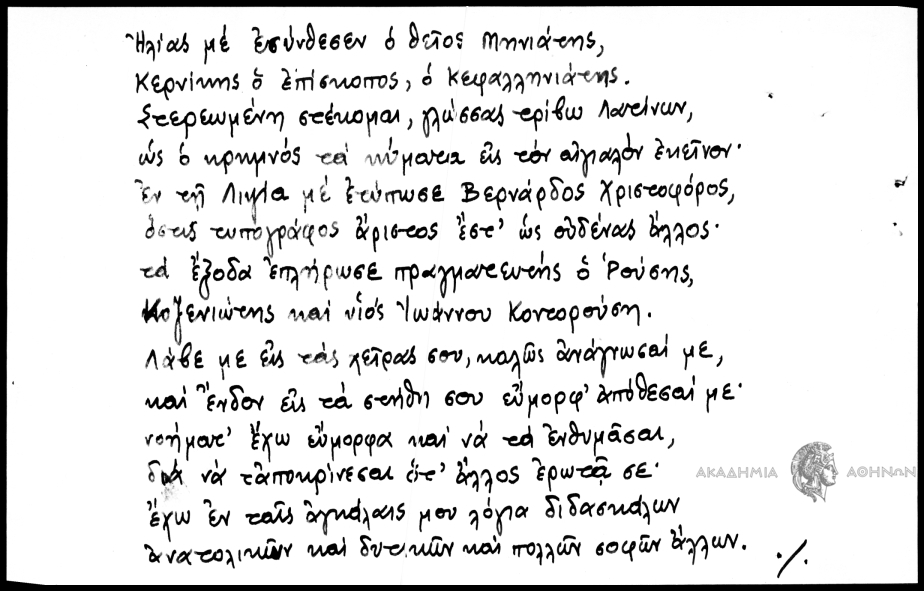 Ἠλίας μέ ἐσύνθεσεν ὁ θεῖος Μηνιάτης,
Κερνίκης ὁ ἐπίσκοπος, ὁ Κεφαλληνιάτης.
Στερεωμένη στέκομαι, γλώσσας τρίβω Λατίνων,
ὡς ὁ κρημνός τά κύματα εἰς τόν αἰγιαλόν ἐκεῖνον·
Ἐν τῇ Λιψίᾳ μέ ἐτύπωσε Βερνάρδος Χριστοφόρος,
ὅστις τυπογράφος ἄριστος ἔστ' ὡς οὐδένας ἄλλος·
τά ἔξοδα ἐπλήρωσε πραγματευτής ὁ Ῥούσης,
Κοζενιώτης καί υἱός Ἰωάννου Κοντορούση.
Λάβε με εἰς τάς χεῖρας σου, καλῶς ἀνάγνωσαί με,
καί ἔνδον εἰς τά στήθη σου εὔμορφ' ἀπόθεσαί με·
νοήματ' ἔχω εὔμορφα καί νά τά ἐνθυμᾶσαι,
διά νά τἀποκρίνεσαι ὅτ' ἄλλος ἐρωτᾷ σε·
ἔχω ἐν ταῖς ἀγκάλαις μου λόγια διδασκάλων
ἀνατολικῶν καί δυτικῶν καί πολλῶν σοφῶν ἄλλων. ./.
ΑΚΑΔΗΜΙΑ ΑΘΗΝΩΝ